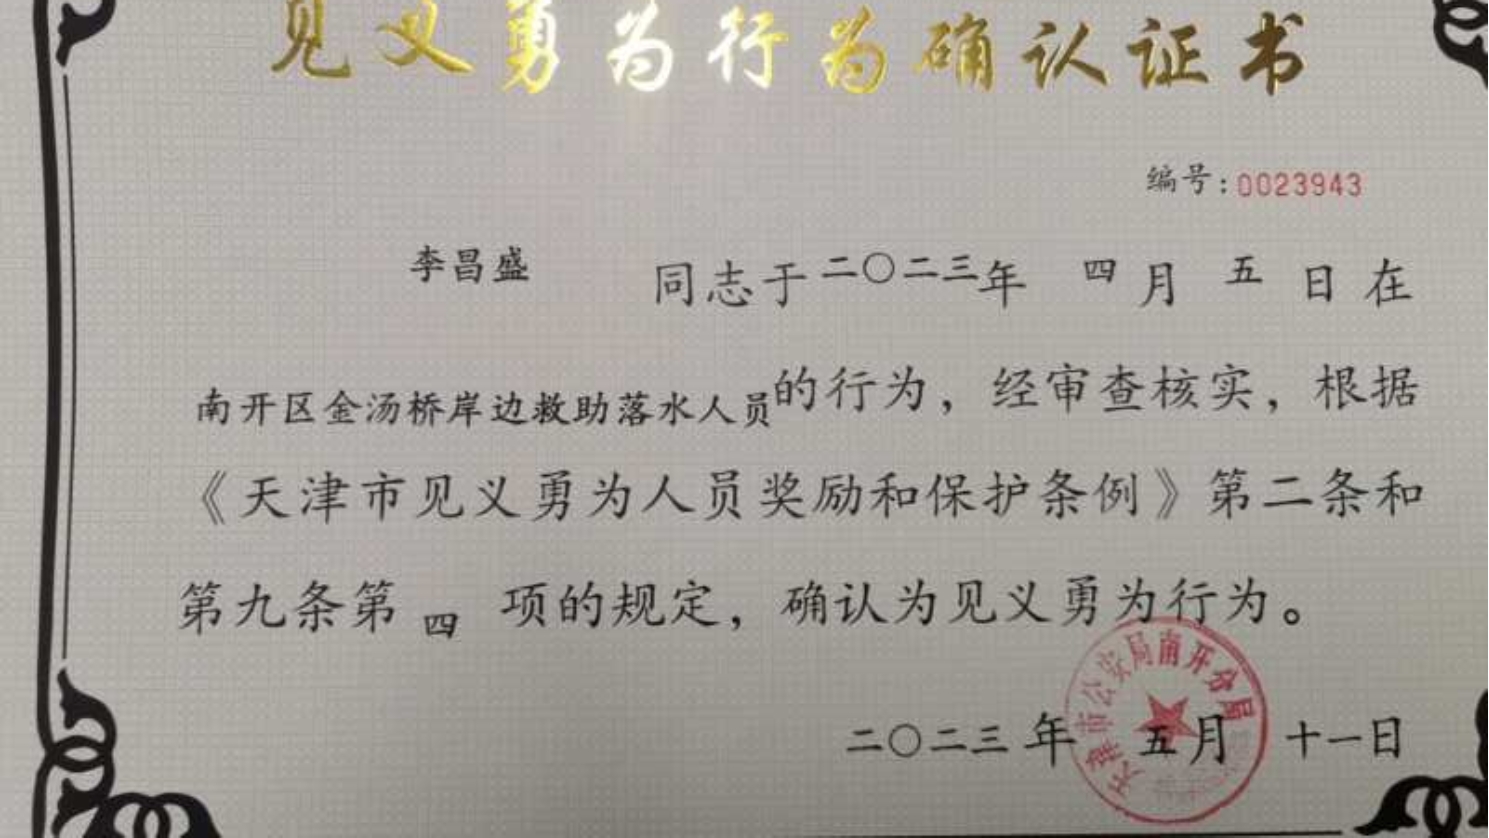 见义勇为行为确认证书
编号:0023943
李昌盛 同志于二〇二三年 四月 五 日在
南开区金汤桥岸边救助落水人员的行为，经审查核实，根据
《天津市见义勇为人员奖励和保护条例》第二条和
第九条第 四 项的规定，确认为见义勇为行为。
天津市公安局南开分局
二〇二三年 五月 十一日